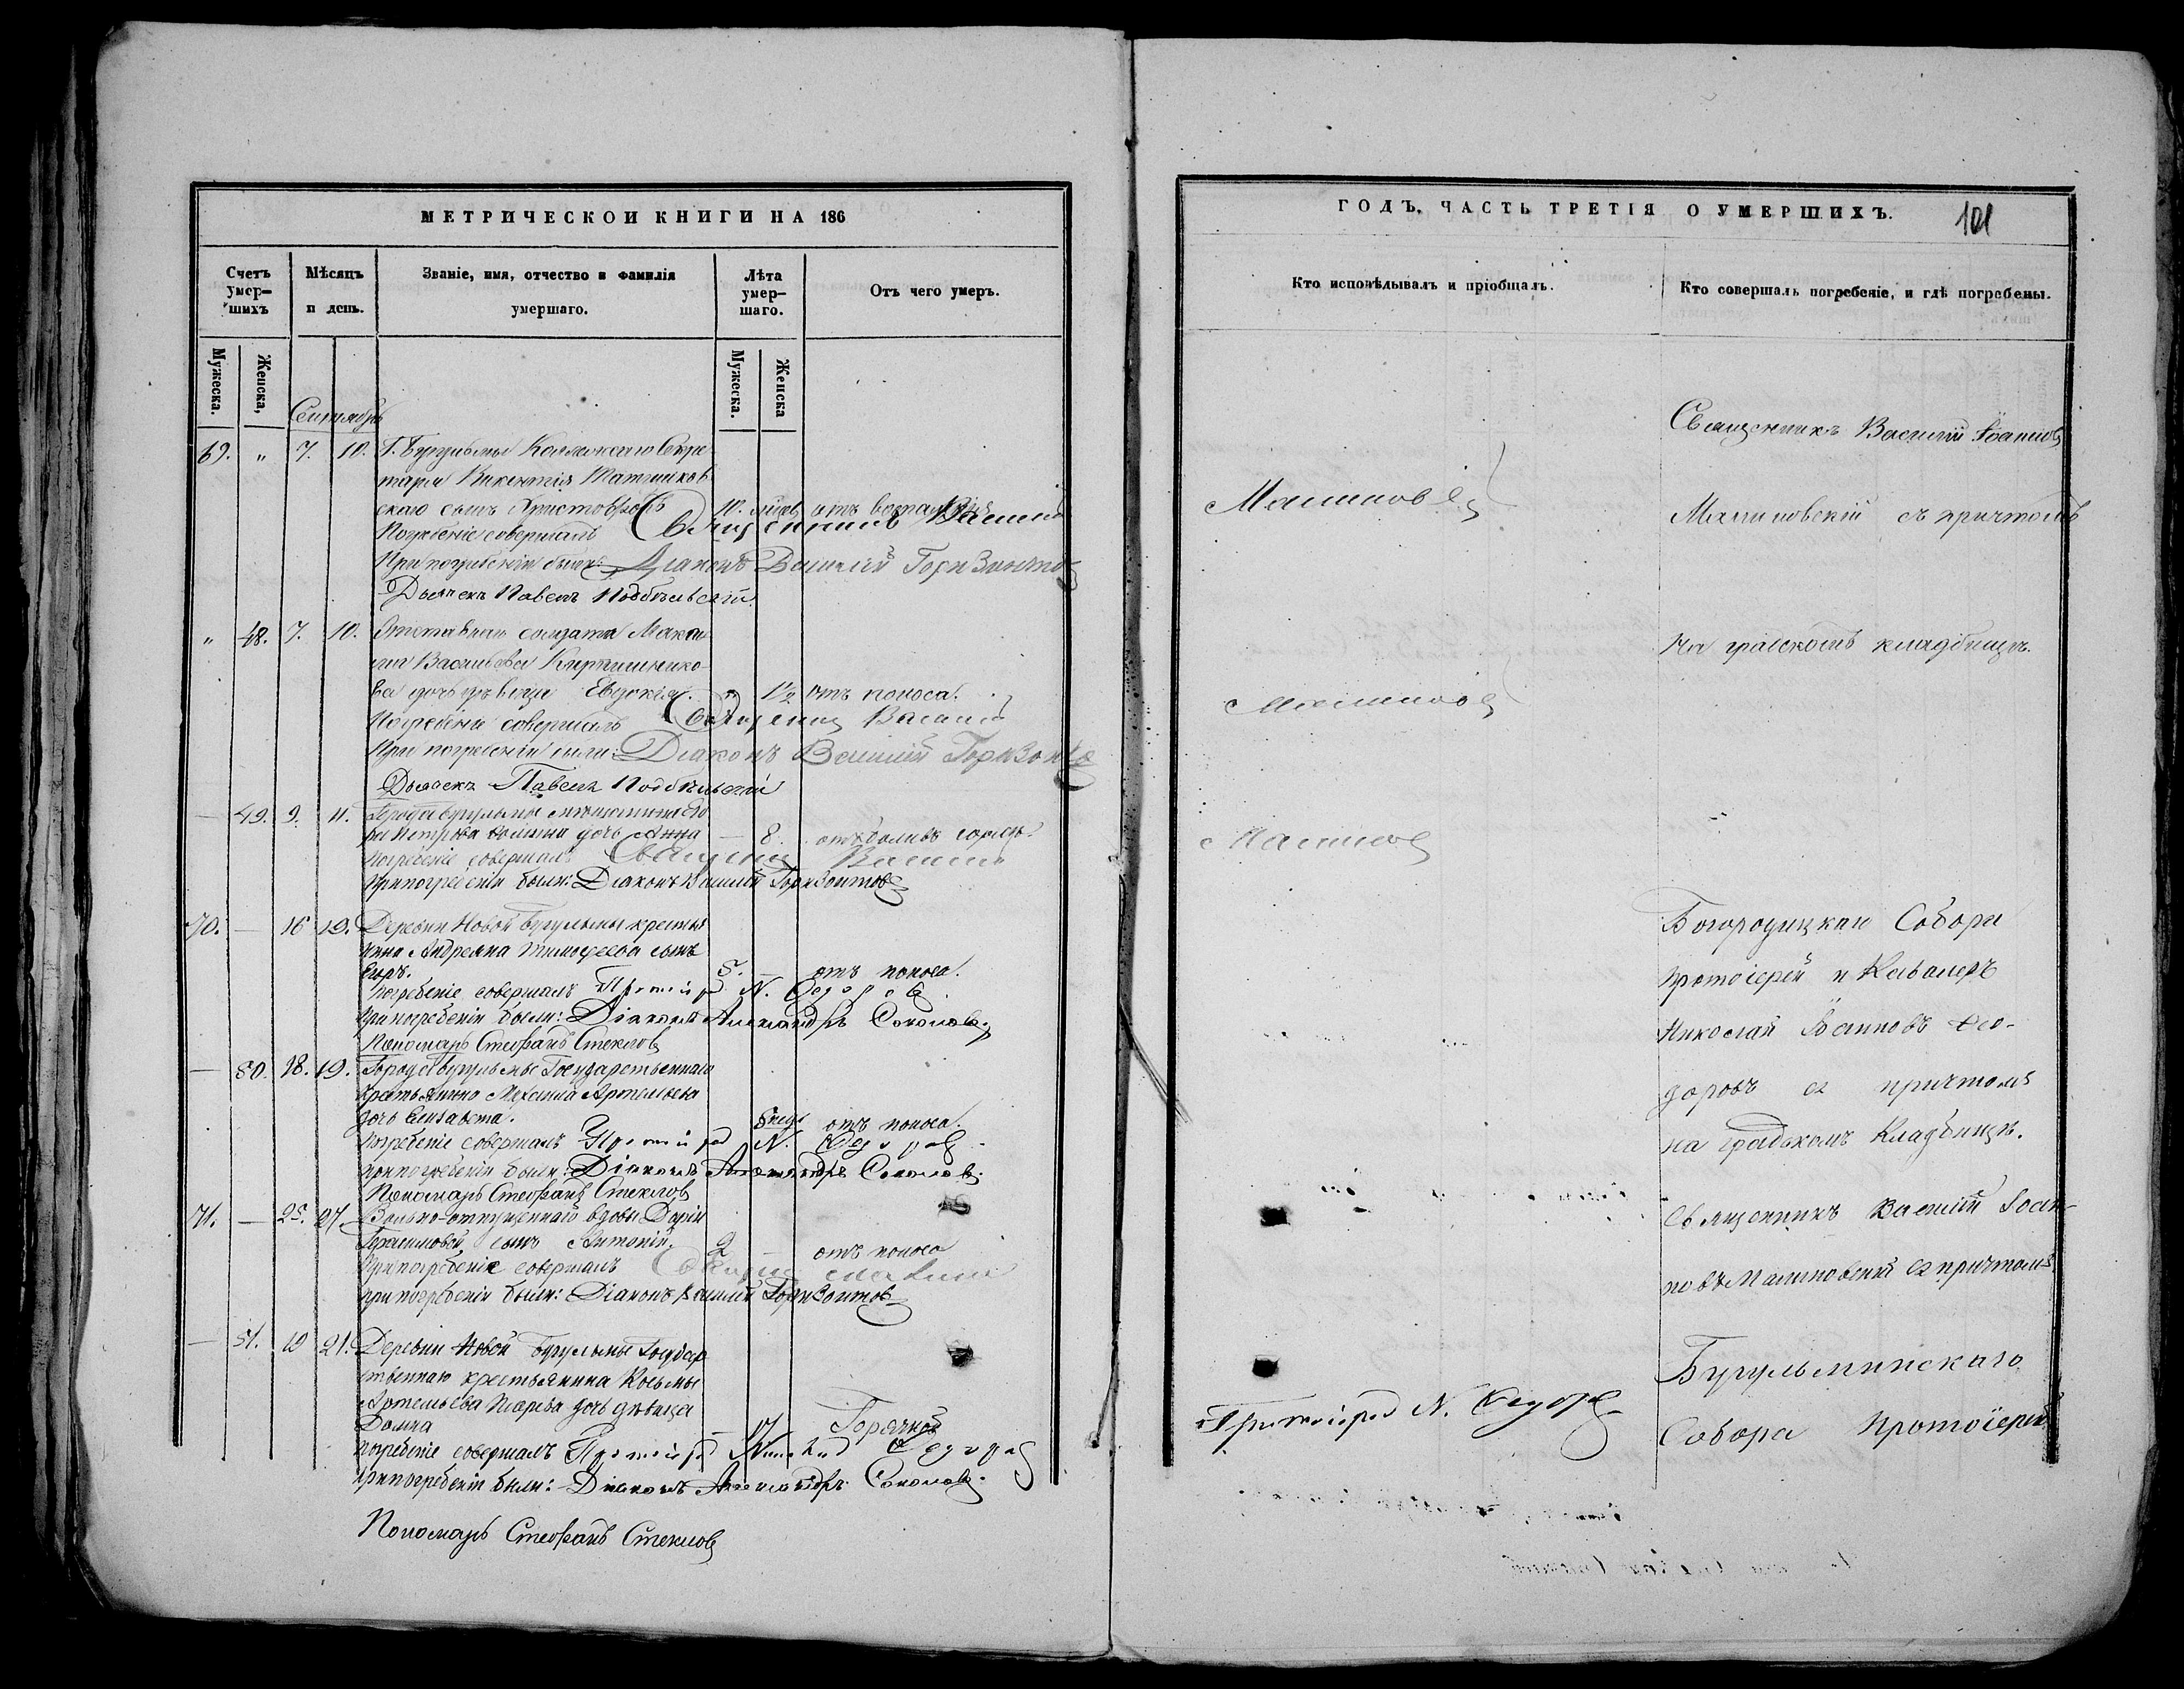 МЕТРИЧЕСКОЙ КНИГИ НА 186
Счетъ умер-шихъ
Мѣсяцъ и день.
Званіе, имя, отчество и фамилія умершаго.
Лѣта умер-шаго.
Отъ чего умеръ.
Мужеска.
Женска,
Мужеска.
Женска
Сентябрь
69. " 7. 10. Г. Бугульмы Секре-
таря Викентія
скаго сынъ 10. отъ
Погребеніе совершалъ Священникъ Василій
При погребеніи были: Діаконъ Василій Горизонтовъ
Дьячекъ Павелъ Подбѣльскій
" 48. 7. 10. Отставнаго солдата
Васильева Кирпишнико-
ва дочь дѣвица Евдокія. " 1½ отъ поноса.
Погребеніе совершалъ Священ Василій
При погребеніи были: Діаконъ Василій Горизонтов
Дьячекъ Павелъ Подбѣльскій
— 49. 9. 11. Города Бугульмы
Петрова дочь Анна — 8. отъ
погребеніе совершалъ Священ Василій
При погребеніи были: Діаконъ Василій Горизонтовъ
70. — 16 19. Деревни Новой Бугульмы крестья
нина Андреяна Тимофеева сынъ
5. — отъ поноса.
погребеніе совершалъ Протоіерей Н. Федоров
При погребеніи были: Діаконъ Александръ Соколовъ.
Пономарь Стефанъ Стекловъ
— 50. 18. 19. Города Бугульмы Государственнаго
крестьянина Артемьева
дочь Елизавета. отъ поноса.
погребеніе совершалъ Протоіерей Н. Федоров
при погребеніи были: Діаконъ Александръ Соколовъ.
Пономарь Стефанъ Стекловъ
71. — 25. 27. Вольно-отпущенной вдовы Даріи
Герасимовой сынъ Антоній. 2 — отъ поноса
погребеніе совершалъ
при погребеніи были: Діаконъ Василій Горизонтовъ
— 51. 19 21. Деревни Новой Бугульмы Государ
ственнаго крестьянина Косьмы
Артемьева дочь дѣвица
Домна — 17 Горячкой
погребеніе совершалъ Протоіерей Николай Федоров
При погребеніи были: Діаконъ Александръ Соколовъ.
Пономарь Стефанъ Стекловъ
ГОДЪ, ЧАСТЬ ТРЕТІЯ О УМЕРШИХЪ.
101
Кто исповѣдывалъ и пріобщалъ.
Кто совершалъ погребеніе, и гдѣ погребены.
Священникъ Василій Іоанновъ
Малиновскій съ причтомъ
на градскомъ кладбищѣ.
Богородицкаго Собора
протоіерей и Кавалеръ
Николай Іоанновъ Фео-
доровъ съ причтомъ
на градскомъ Кладбищѣ.
Священникъ Василій Іоан-
новъ Малиновскій съ причтомъ
Бугульминскаго
Протоіерей Н. Федоров
Собора протоіерей